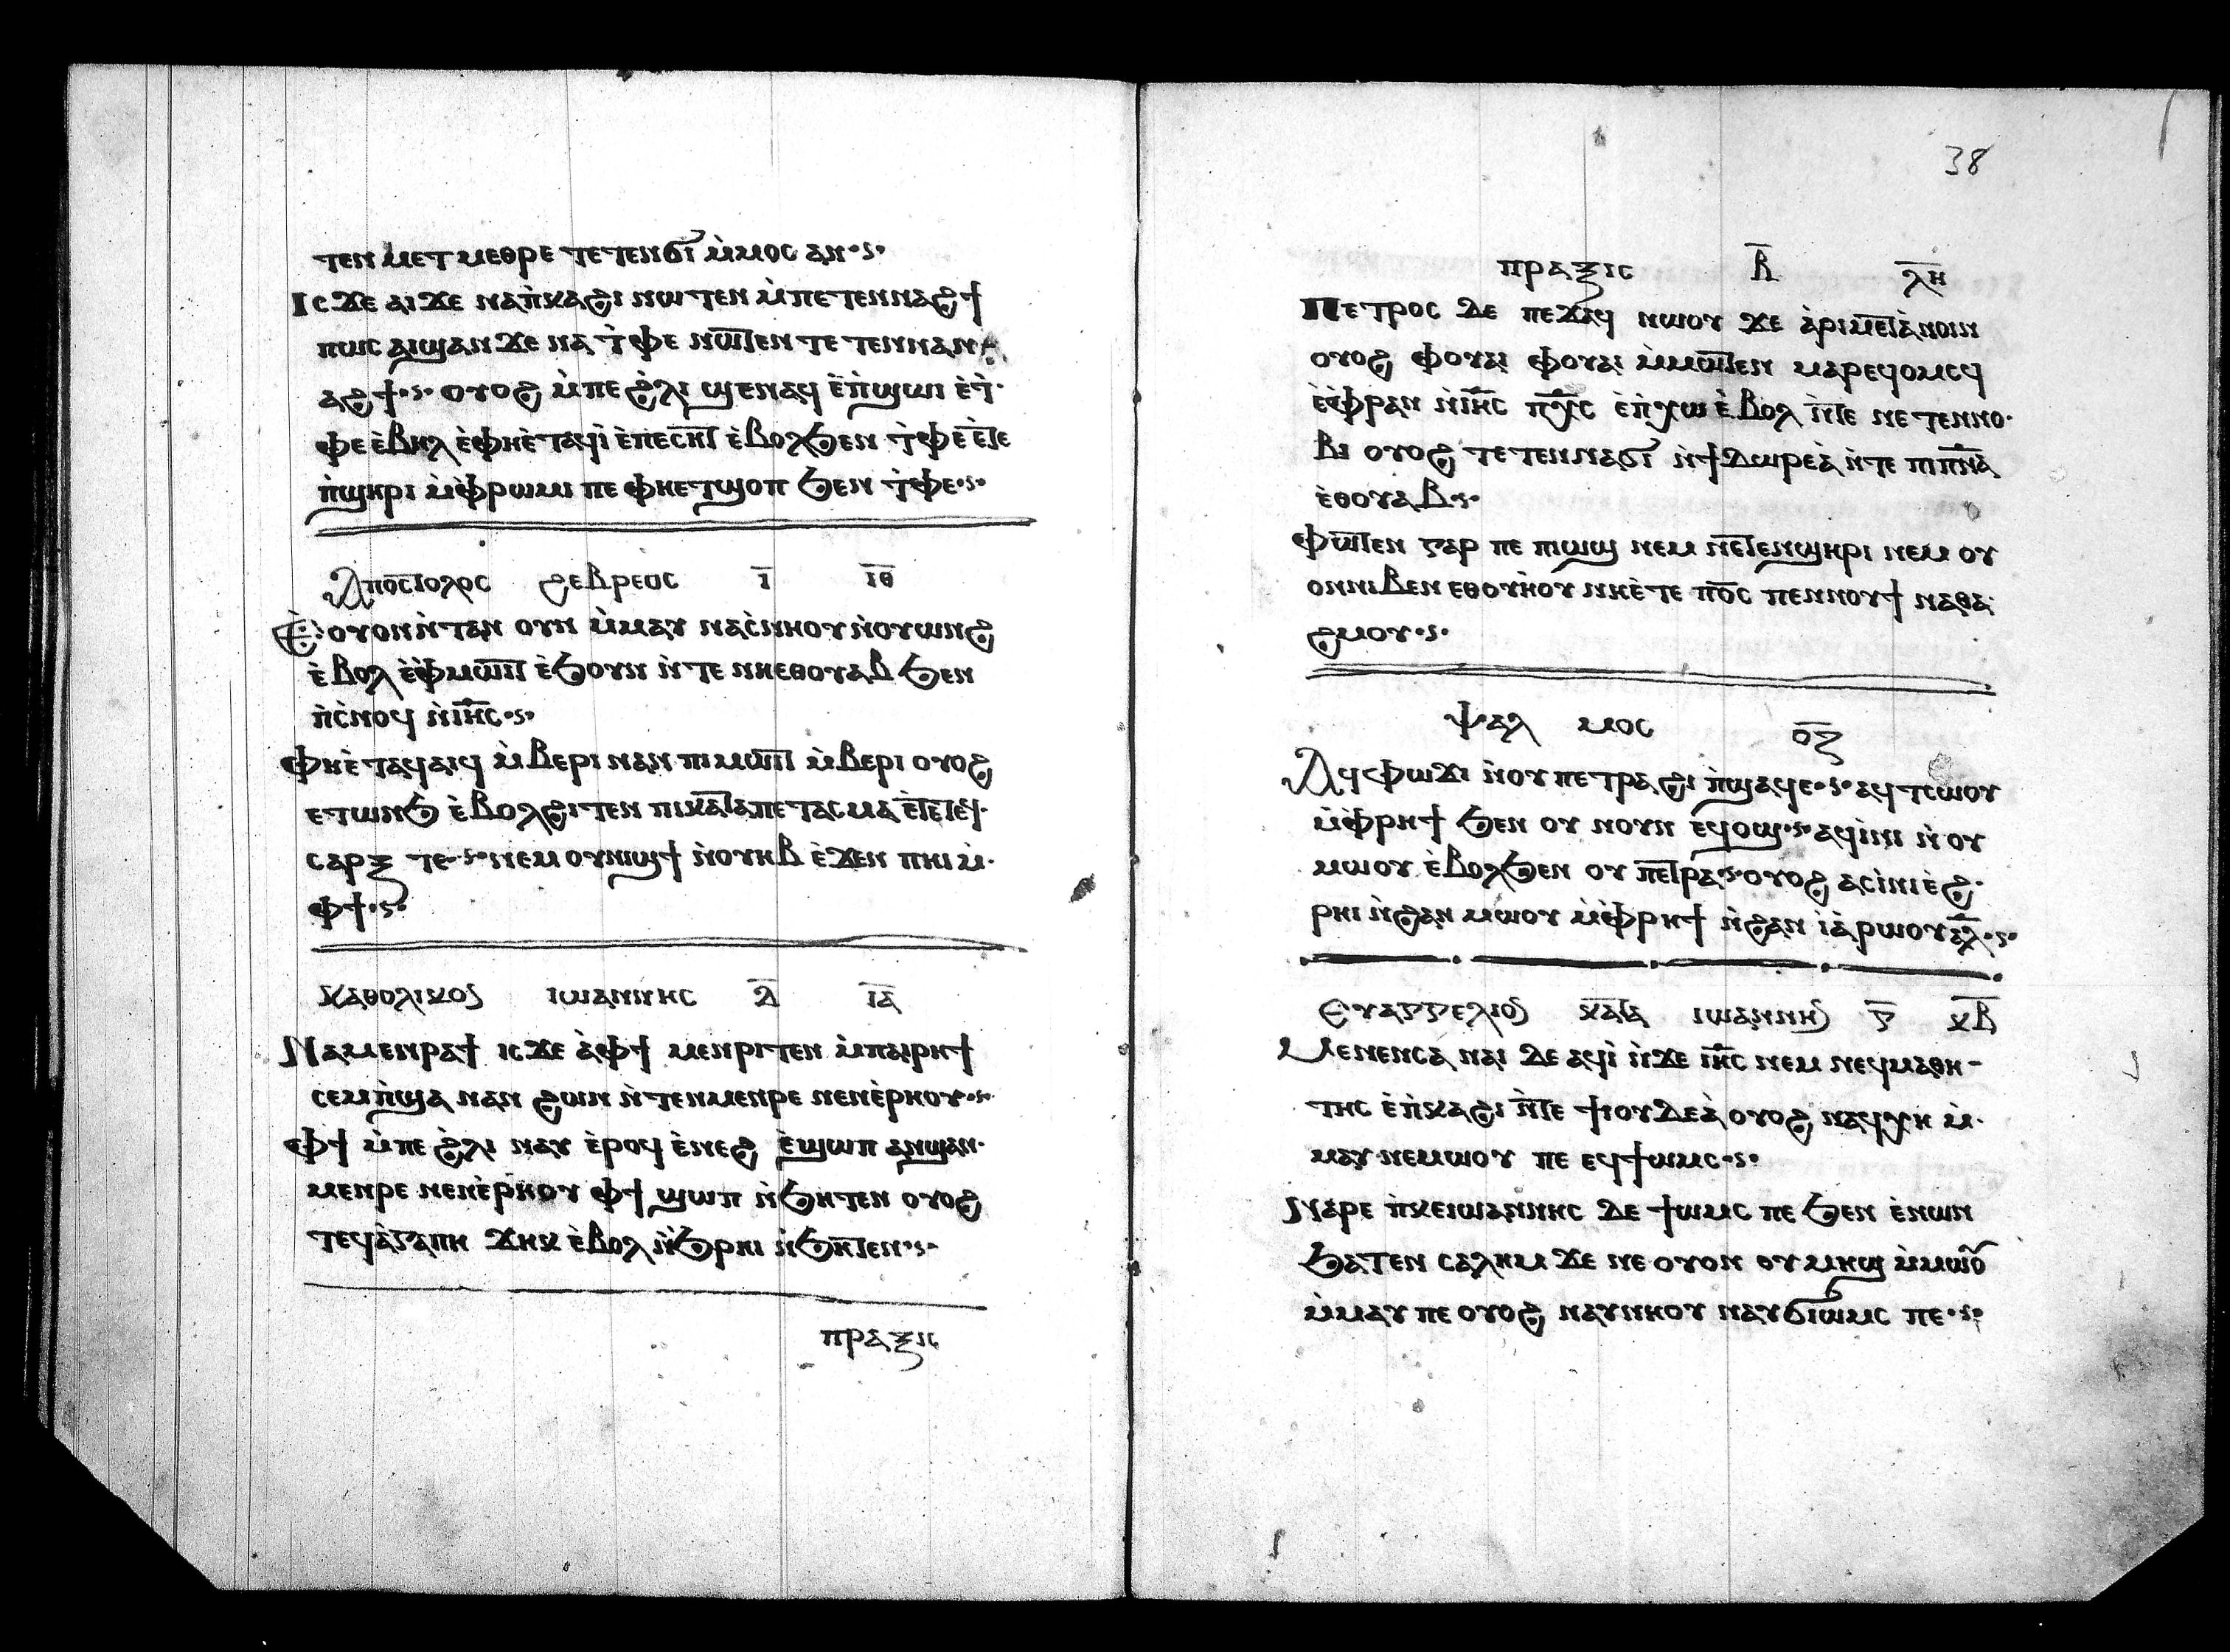 ⲧⲉⲛⲙⲉⲧⲙⲉⲑⲣⲉ ⲧⲉⲧⲉⲛϭⲓ ⲙ̀ⲙⲟⲥ ⲁⲛ·ⲋ·
Ⲓⲥϫⲉ ⲁⲓϫⲉ ⲛⲁⲡ̀ⲕⲁϩⲓ ⲛⲱⲧⲉⲛ ⲙ̀ⲡⲉⲧⲉⲛⲛⲁϩϯ
ⲡⲱⲥ ⲁⲓϣⲁⲛϫⲉ ⲛⲁ ⲧ̀ⲫⲉ ⲛⲱⲧⲉⲛ ⲧⲉⲧⲉⲛⲛⲁⲛ
ⲁϩϯ·ⲋ· ⲟⲩⲟϩ ⲙ̀ⲡⲉ ϩ̀ⲗⲓ ϣⲉⲛⲁϥ ⲉ̀ⲡ̀ϣⲱⲓ ⲉ̀ⲧ̀·
ⲫⲉ ⲉ̀ⲃⲏⲗ ⲉ̀ⲫⲏⲉ̀ⲧⲁϥⲓ̀ ⲉ̀ⲡⲉⲥⲏⲧ ⲉ̀ⲃⲟⲗϧⲉⲛ ⲧ̀ⲫⲉ ⲉ̀ⲧⲉ
ⲡ̀ϣⲏⲣⲓ ⲙ̀ⲫ̀ⲣⲱⲙⲓ ⲡⲉ ⲫⲏⲉⲧϣⲟⲡ ϧⲉⲛ ⲧ̀ⲫⲉ·ⲋ·
Ⲁⲡⲟⲥⲧⲟⲗⲟⲥ ϩⲉⲃⲣⲉⲟⲥ ⲓ̅ ⲓ̅ⲑ̅
Ⲉ̀ⲟⲩⲟⲛⲛ̀ⲧⲁⲛ ⲟⲩⲛ ⲙ̀ⲙⲁⲩ ⲛⲁⲥ̀ⲛⲏⲟⲩ ⲛ̀ⲟⲩⲱⲛϩ
ⲉ̀ⲃⲟⲗ ⲉ̀ⲫ̀ⲙⲱⲓⲧ ⲉ̀ϧⲟⲩⲛ ⲛ̀ⲧⲉ ⲛⲏⲉⲑⲟⲩⲁⲃ ϧⲉⲛ
ⲡ̀ⲥ̀ⲛⲟϥ ⲛ̀ⲓⲏ̅ⲥ̅·ⲋ·
Ⲫⲏⲉ̀ⲧⲁϥⲁⲓϥ ⲙ̀ⲃⲉⲣⲓ ⲛⲁⲛ ⲡⲓⲙⲱⲓⲧ ⲙ̀ⲃⲉⲣⲓ ⲟⲩⲟϩ
ⲉⲧⲱⲛϧ ⲉ̀ⲃⲟⲗϩⲓⲧⲉⲛ ⲡⲓⲕⲁⲧⲁⲡⲉⲧⲁⲥⲙⲁ ⲉ̀ⲧⲉⲧⲉϥ·
ⲥⲁⲣⲝ ⲧⲉ·ⲋ· ⲛⲉⲙ ⲟⲩⲛⲓϣϯ ⲛ̀ⲟⲩⲏⲃ ⲉ̀ϫⲉⲛ ⲡⲏⲓ ⲙ̀·
ⲫϯ·ⲋ·
ⲕⲁⲑⲟⲗⲓⲕⲟⲥ ⲓⲱⲁⲛⲛⲏⲥ ⲁ̅ ⲓ̅ⲁ̅
Ⲛⲁⲙⲉⲛⲣⲁϯ ⲓⲥϫⲉ ⲁ̀ⲫϯ ⲙⲉⲛⲣⲓⲧⲉⲛ ⲙ̀ⲡⲁⲓⲣⲏϯ
ⲥⲉⲙ̀ⲡϣⲁ ⲛⲁⲛ ϩⲱⲛ ⲛ̀ⲧⲉⲛⲙⲉⲛⲣⲉ ⲛⲉⲛⲉ̀ⲣⲏⲟⲩ·ⲋ·
Ⲫϯ ⲙ̀ⲡⲉ ϩ̀ⲗⲓ ⲛⲁⲩ ⲉ̀ⲣⲟϥ ⲉ̀ⲛⲉϩ ⲉ̀ϣⲱⲡ ⲁⲛϣⲁⲛ·
ⲙⲉⲛⲣⲉ ⲛⲉⲛⲉ̀ⲣⲏⲟⲩ ⲫϯ ϣⲱⲡ ⲛ̀ϧⲏⲧⲉⲛ ⲟⲩⲟϩ
ⲧⲉϥⲁ̀ⲅⲁⲡⲏ ϫⲏⲕ ⲉ̀ⲃⲟⲗ ⲛ̀ϧ̀ⲣⲏⲓ ⲛ̀ϧⲏⲧⲉⲛ·ⲋ·
ⲡⲣⲁⲝⲓⲥ
38
ⲡⲣⲁⲝⲓⲥ ⲃ̅ ⲗ̅ⲏ̅
Ⲡⲉⲧⲣⲟⲥ ⲇⲉ ⲡⲉϫⲁϥ ⲛⲱⲟⲩ ϫⲉ ⲁ̀ⲣⲓⲙⲉⲧⲁ̀ⲛⲟⲓⲛ
ⲟⲩⲟϩ ⲫⲟⲩⲁⲓ ⲫⲟⲩⲁⲓ ⲙ̀ⲙⲱⲧⲉⲛ ⲙⲁⲣⲉϥⲟⲙⲥϥ
ⲉ̀ⲫ̀ⲣⲁⲛ ⲛ̀ⲓⲏ̅ⲥ̅ ⲡⲭ̅ⲥ̅ ⲉ̀ⲡ̀ⲭⲱ ⲉ̀ⲃⲟⲗ ⲛ̀ⲧⲉ ⲛⲉⲧⲉⲛⲛⲟ·
ⲃⲓ ⲟⲩⲟϩ ⲧⲉⲧⲉⲛⲛⲁϭⲓ ⲛ̀ϯⲇⲱⲣⲉⲁ̀ ⲛ̀ⲧⲉ ⲡⲓⲡ̅ⲛ̅ⲁ̅
ⲉ̀ⲑⲟⲩⲁⲃ·ⲋ·
Ⲫⲱⲧⲉⲛ ⲅⲁⲣ ⲡⲉ ⲡⲓⲱϣ ⲛⲉⲙ ⲛⲉⲧⲉⲛϣⲏⲣⲓ ⲛⲉⲙ ⲟⲩ
ⲟⲛⲛⲓⲃⲉⲛ ⲉⲑⲟⲩⲏⲟⲩ ⲛⲏⲉ̀ⲧⲉ ⲡⲟ̅ⲥ̅ ⲡⲉⲛⲛⲟⲩϯ ⲛⲁⲑⲁ·
ϩⲙⲟⲩ·ⲋ·
Ⲯⲁⲗ ⲙⲟⲥ ⲟ̅ⲍ̅
Ⲁϥⲫⲱϫⲓ ⲛ̀ⲟⲩⲡⲉⲧⲣⲁ ϩⲓ ⲡ̀ϣⲁϥⲉ·ⲋ· ⲁϥⲧⲥⲱⲟⲩ
ⲙ̀ⲫ̀ⲣⲏϯ ϧⲉⲛ ⲟⲩ ⲛⲟⲩⲛ ⲉϥⲟϣ·ⲋ· ⲁϥⲓ̀ⲛⲓ ⲛ̀ⲟⲩ
ⲙⲱⲟⲩ ⲉ̀ⲃⲟⲗϧⲉⲛ ⲟⲩ ⲡⲉⲧⲣⲁ·ⲋ· ⲟⲩⲟϩ ⲁⲥⲓ̀ⲛⲓ ⲉ̀ϩ·
ⲣⲏⲓ ⲛ̀ϩⲁⲛ ⲙⲱⲟⲩ ⲙ̀ⲫ̀ⲣⲏϯ ⲛ̀ϩⲁⲛ ⲓ̀ⲁⲣⲱⲟⲩ ⲁ̅ⲗ̅·ⲋ·
Ⲉⲩⲁⲅⲅⲉⲗⲓⲟⲛ ⲕⲁⲧⲁ ⲓⲱⲁⲛⲛⲏⲥ ⲅ̅ ⲕ̅ⲃ̅
Ⲙⲉⲛⲉⲛⲥⲁ ⲛⲁⲓ ⲇⲉ ⲁϥⲓ̀ ⲛ̀ϫⲉ ⲓⲏ̅ⲥ̅ ⲛⲉⲙ ⲛⲉϥⲙⲁⲑⲏ-
ⲧⲏⲥ ⲉ̀ⲡ̀ⲕⲁϩⲓ ⲛ̀ⲧⲉ ϯⲓⲟⲩⲇⲉⲁ̀ ⲟⲩⲟϩ ⲛⲁϥⲭⲏ ⲙ̀·
ⲙⲁⲩ ⲛⲉⲙⲱⲟⲩ ⲡⲉ ⲉϥϯⲱⲙⲥ·ⲋ·
Ⲛⲁⲣⲉ ⲡ̀ⲕⲉⲓⲱⲁⲛⲛⲏⲥ ⲇⲉ ϯⲱⲙⲥ ⲡⲉ ϧⲉⲛ ⲉ̀ⲛⲱⲛ
ϧⲁⲧⲉⲛ ⲥⲁⲗⲏⲙ ϫⲉ ⲛⲉ ⲟⲩⲟⲛ ⲟⲩⲙⲏϣ ⲙ̀ⲙⲱⲟⲩ
ⲙ̀ⲙⲁⲩ ⲡⲉ ⲟⲩⲟϩ ⲛⲁⲩⲛⲏⲟⲩ ⲛⲁⲩϭⲓⲱⲙⲥ ⲡⲉ·ⲋ·